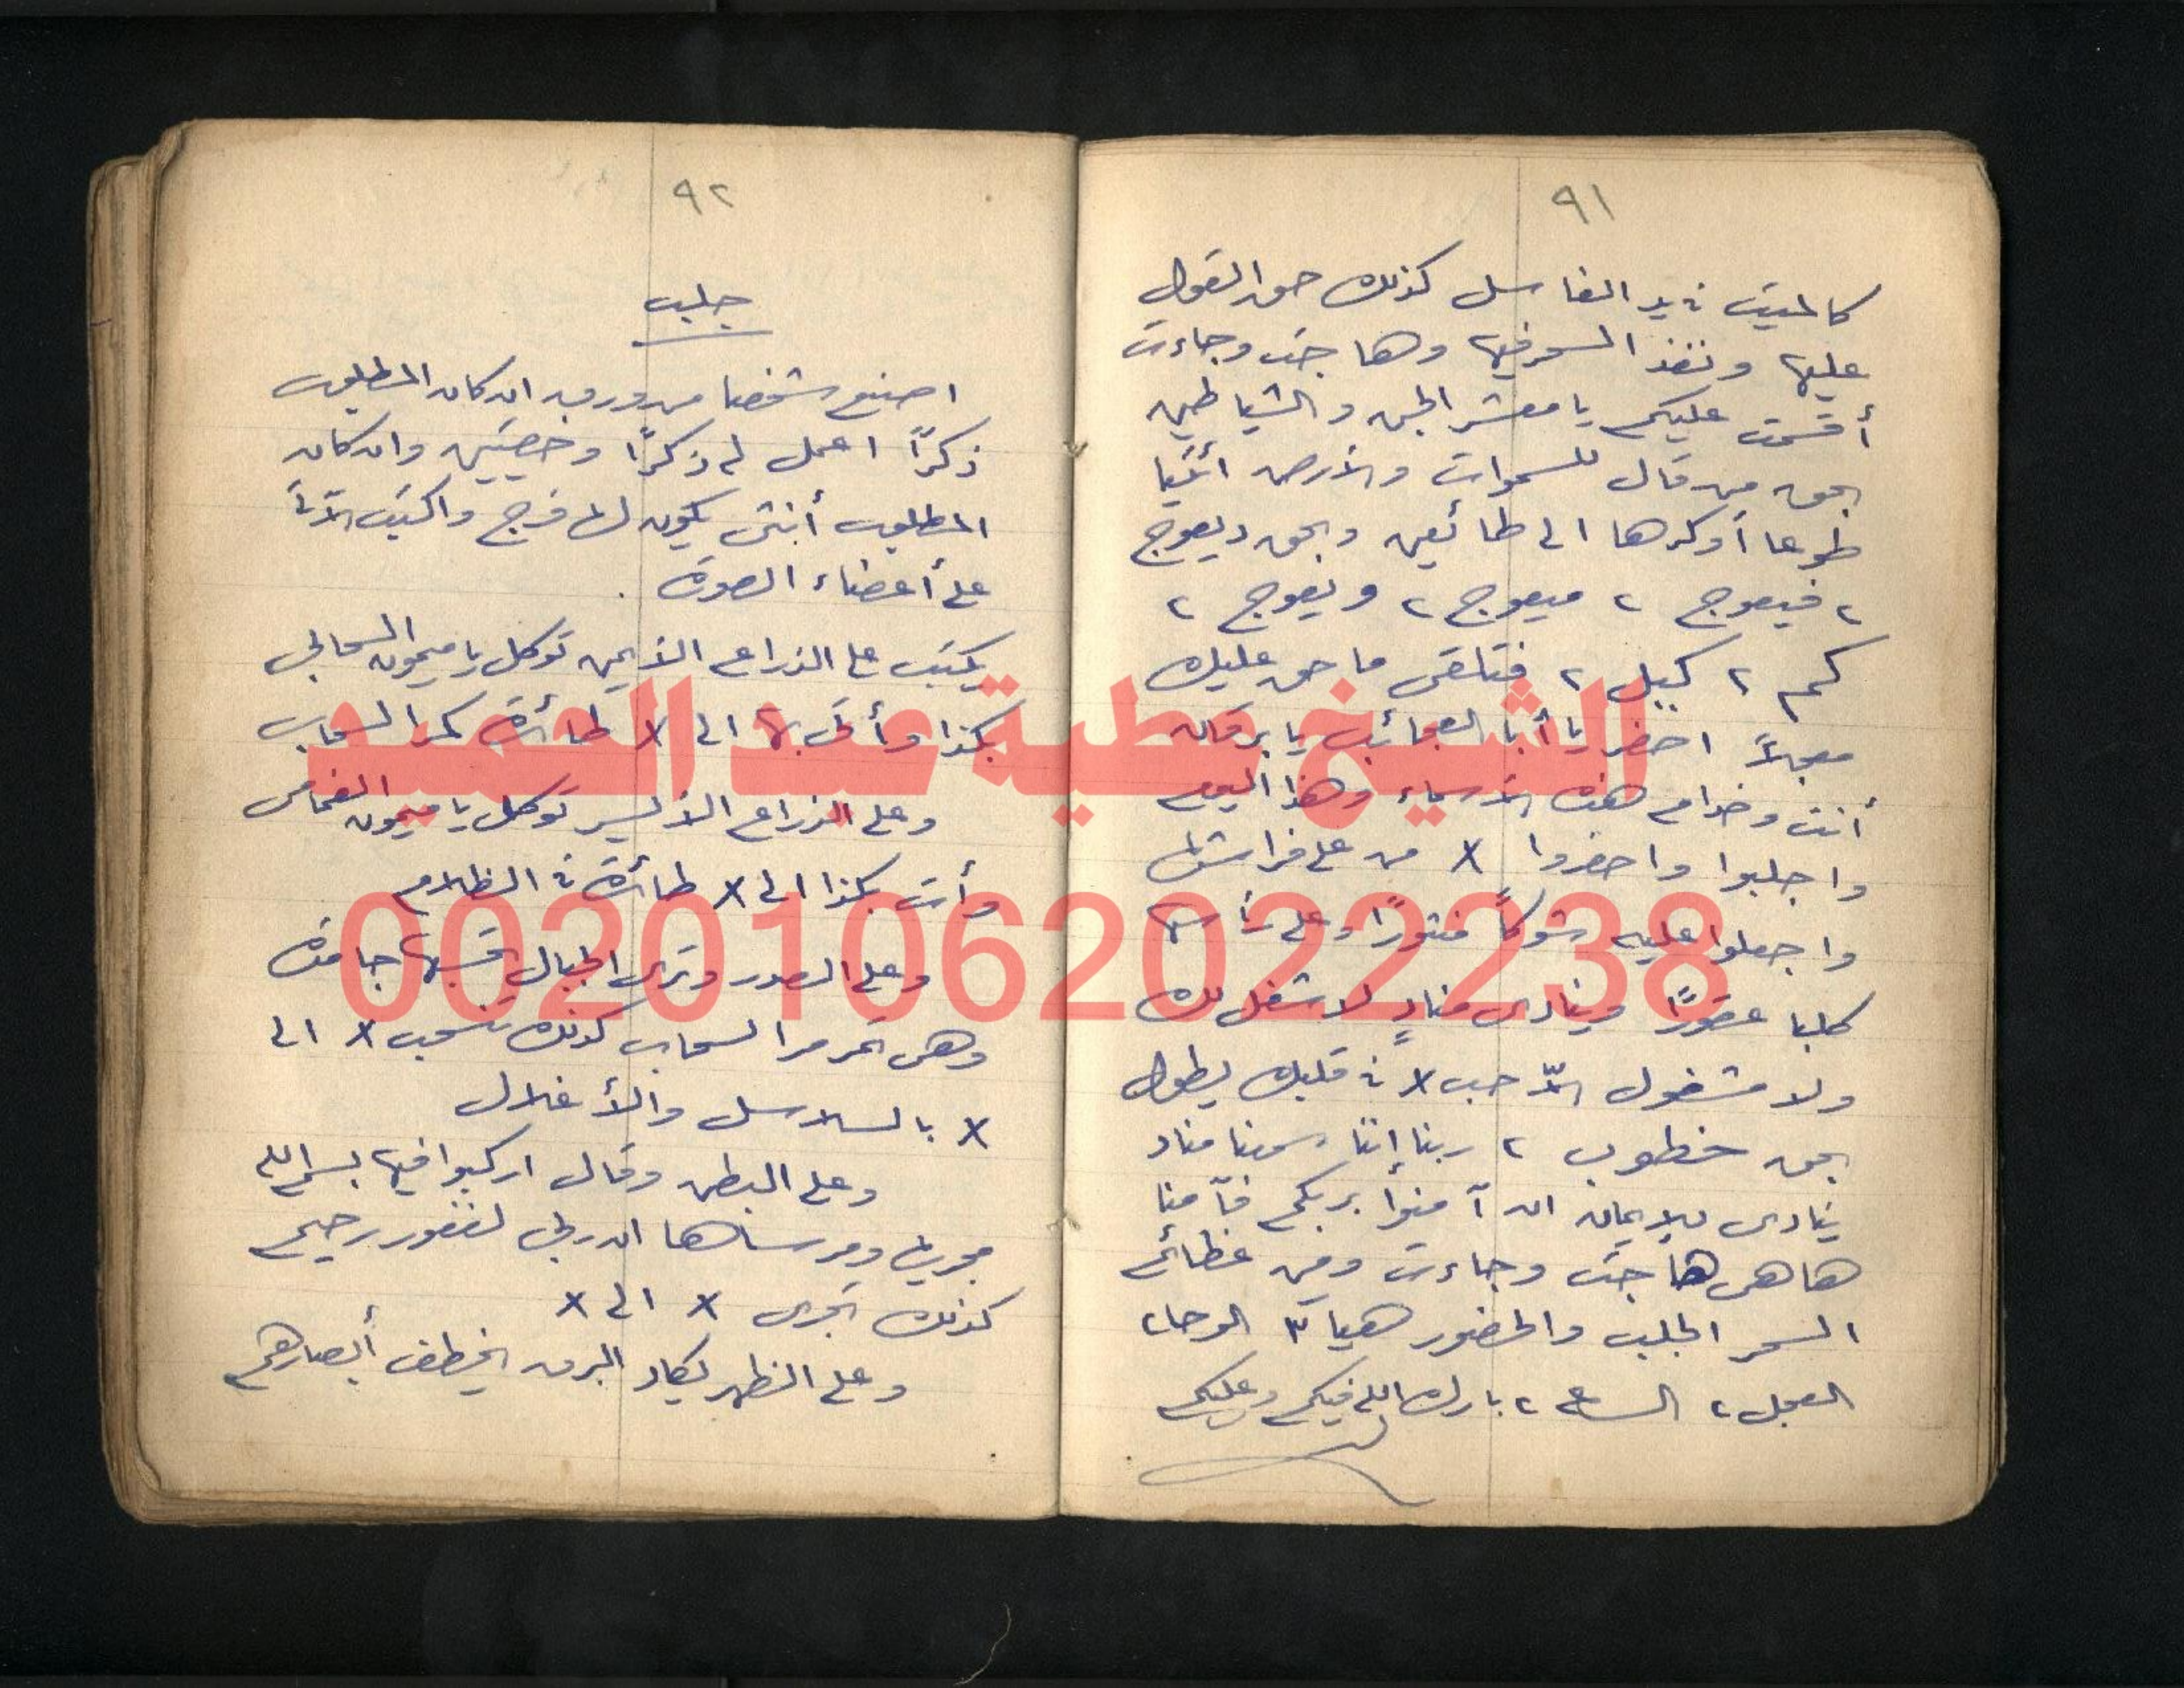 ٩١
كالميت في يد الغاسل كذلك حق القول
عليها ونفذ السحر فيها وها جت وجاءت
أقسمت عليكم يا معشر الجن والشياطين
بحق من قال للسموات والأرض ائتيا
طوعا أو كرها الى طائعين وبحق ديعوج
٢ فيعوج ٢ ميعوج ٢ ويعوج ٢
كم ٢ كيل ٢ فتلقى ما حق عليك
معجلاً احضر يا أبا العجائب يا برقان
أنت وخدام هذه الأسماء وهذا اليوم
واجلبوا واحضروا x من على فراشها
واجعلوا عليه شوكاً وعلى رأسها
كلبا عقورًا وينادى منادٍ لا شغل لك
ولا مشغول الاّ حب x في قلبك يطول
بحق خطوب ٢ ربنا إننا سمعنا مناد
ينادى للإيمان ان آمنوا بربكم فآمنا
هاهى ها جت وجاءت ومن عظائم
السحر الجلب والحضور هيا ٣ الوحا ٢
العجل ٢ الساعة ٢ بارك الله فيكم وعليكم
٩٢
جلب
اصنع شخصا من ورق ان كان المطلوب
ذكرًا اعمل له ذكرًا وخصيتين وان كان
المطلوب أنثى يكون لها فرج واكتب الآتى
على أعضاء الصورة .
يكتب على الذراع الأيمن توكل يا ميمون السحابى
بكذا وأتى بها الى x طائرة كمر السحاب
وعلى الذراع الأيسر توكل يا ميمون الغمامى
وأت بكذا الى x طائرة في الظلام
وعلى الصدر وترى الجبال تحسبها جامدة
وهى تمر مر السحاب كذلك تنسحب x الى
x بالسلاسل والأغلال
وعلى البطن وقال اركبوا فيها بسم الله
مجريها ومرساها ان ربى لغفور رحيم
كذلك تجرى x الى x
وعلى الظهر يكاد البرق يخطف أبصارهم
الشيخ عطية عبد الحميد
00201062022238